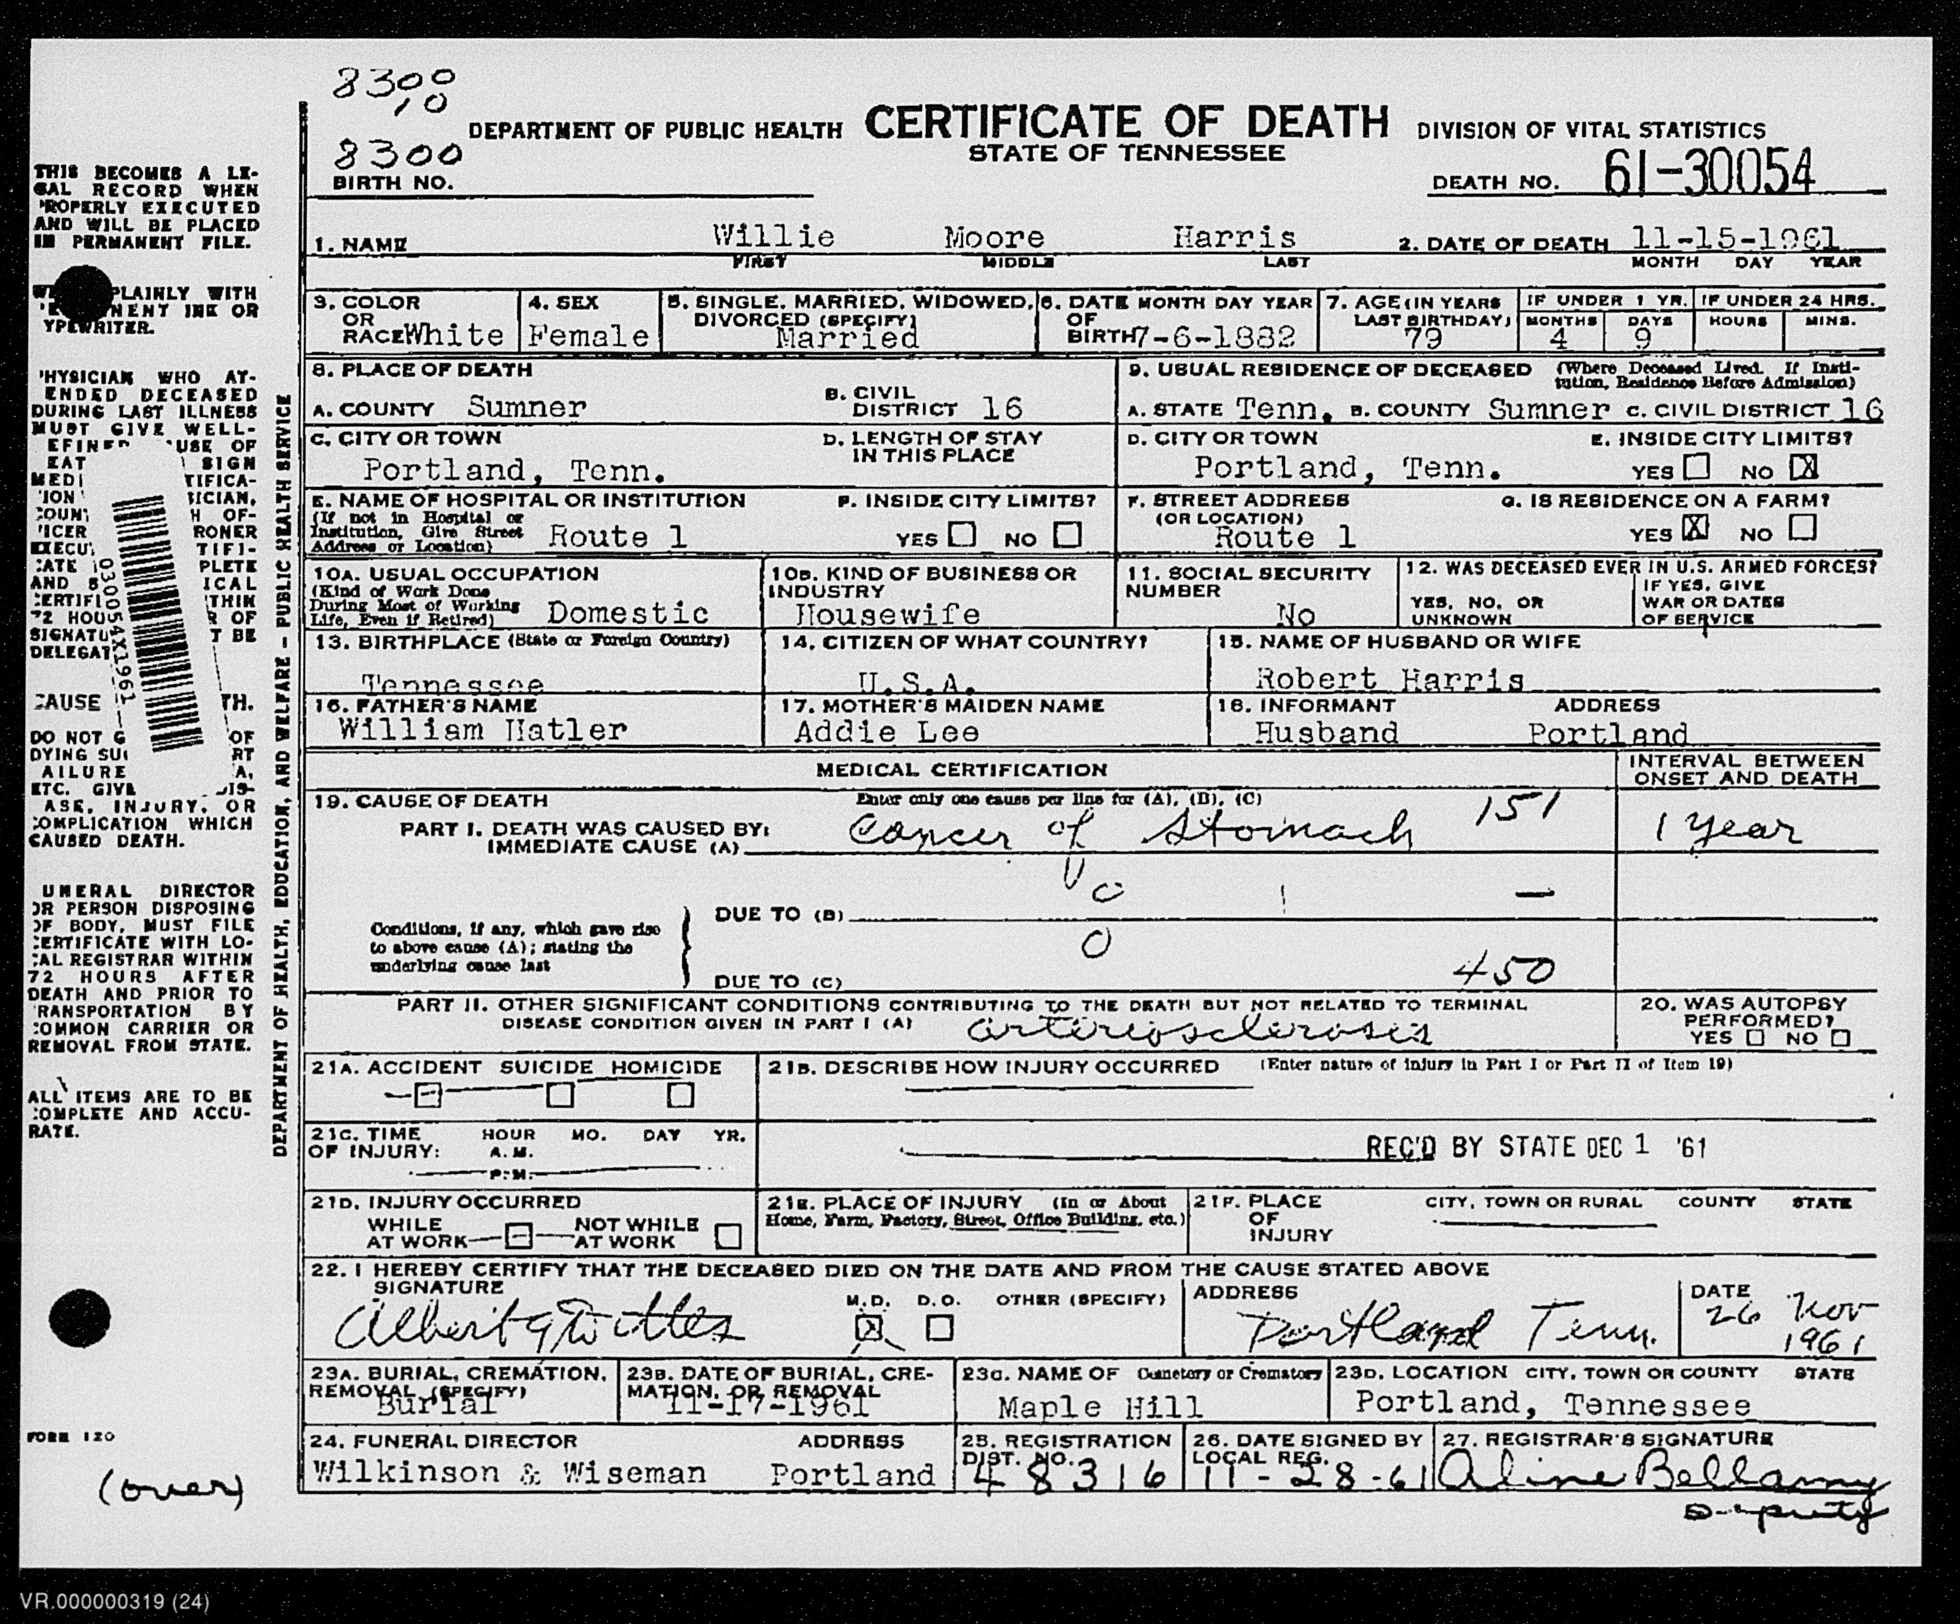 8300
10
8300
DEPARTMENT OF PUBLIC HEALTH CERTIFICATE OF DEATH DIVISION OF VITAL STATISTICS
STATE OF TENNESSEE
BIRTH NO. DEATH NO. 61-30054
1. NAME Willie Moore Harris 2. DATE OF DEATH 11-15-1961
FIRST MIDDLE LAST MONTH DAY YEAR
3. COLOR OR RACE White
4. SEX Female
5. SINGLE, MARRIED, WIDOWED, DIVORCED (SPECIFY) Married
6. DATE OF BIRTH MONTH DAY YEAR 7-6-1882
7. AGE (IN YEARS LAST BIRTHDAY) 79
IF UNDER 1 YR. MONTHS 4 DAYS 9
IF UNDER 24 HRS. HOURS MINS.
8. PLACE OF DEATH
A. COUNTY Sumner
B. CIVIL DISTRICT 16
9. USUAL RESIDENCE OF DECEASED (Where Deceased Lived. If Institution, Residence Before Admission)
A. STATE Tenn. B. COUNTY Sumner C. CIVIL DISTRICT 16
C. CITY OR TOWN Portland, Tenn.
D. LENGTH OF STAY IN THIS PLACE
D. CITY OR TOWN Portland, Tenn.
E. INSIDE CITY LIMITS? YES NO X
E. NAME OF HOSPITAL OR INSTITUTION (If not in Hospital or Institution, Give Street Address or Location) Route 1
F. INSIDE CITY LIMITS? YES NO
F. STREET ADDRESS (OR LOCATION) Route 1
G. IS RESIDENCE ON A FARM? YES X NO
10A. USUAL OCCUPATION (Kind of Work Done During Most of Working Life, Even if Retired) Domestic
10B. KIND OF BUSINESS OR INDUSTRY Housewife
11. SOCIAL SECURITY NUMBER No
12. WAS DECEASED EVER IN U.S. ARMED FORCES?
YES, NO, OR UNKNOWN
IF YES, GIVE WAR OR DATES OF SERVICE
13. BIRTHPLACE (State or Foreign Country) Tennessee
14. CITIZEN OF WHAT COUNTRY? U.S.A.
15. NAME OF HUSBAND OR WIFE Robert Harris
16. FATHER'S NAME William Hatler
17. MOTHER'S MAIDEN NAME Addie Lee
18. INFORMANT ADDRESS Husband Portland
MEDICAL CERTIFICATION
INTERVAL BETWEEN ONSET AND DEATH
19. CAUSE OF DEATH Enter only one cause per line for (A), (B), (C)
PART I. DEATH WAS CAUSED BY: IMMEDIATE CAUSE (A) Cancer of Stomach 151 1 year
Conditions, if any, which gave rise to above cause (A); stating the underlying cause last
DUE TO (B) 0 —
DUE TO (C) 0 450
PART II. OTHER SIGNIFICANT CONDITIONS CONTRIBUTING TO THE DEATH BUT NOT RELATED TO TERMINAL DISEASE CONDITION GIVEN IN PART I (A) arteriosclerosis
20. WAS AUTOPSY PERFORMED? YES NO
21A. ACCIDENT SUICIDE HOMICIDE
21B. DESCRIBE HOW INJURY OCCURRED (Enter nature of injury in Part I or Part II of Item 19)
21C. TIME OF INJURY: HOUR MO. DAY YR.
A.M.
P.M.
REC'D BY STATE DEC 1 '61
21D. INJURY OCCURRED
WHILE AT WORK NOT WHILE AT WORK
21E. PLACE OF INJURY (In or About Home, Farm, Factory, Street, Office Building, etc.)
21F. PLACE OF INJURY CITY, TOWN OR RURAL COUNTY STATE
22. I HEREBY CERTIFY THAT THE DECEASED DIED ON THE DATE AND FROM THE CAUSE STATED ABOVE
SIGNATURE Albert G Dittes
M.D. X D.O. OTHER (SPECIFY)
ADDRESS Portland Tenn.
DATE 26 Nov 1961
23A. BURIAL, CREMATION, REMOVAL (SPECIFY) Burial
23B. DATE OF BURIAL, CREMATION, OR REMOVAL 11-17-1961
23C. NAME OF Cemetery or Crematory Maple Hill
23D. LOCATION CITY, TOWN OR COUNTY STATE Portland, Tennessee
24. FUNERAL DIRECTOR ADDRESS Wilkinson & Wiseman Portland
25. REGISTRATION DIST. NO. 48316
26. DATE SIGNED BY LOCAL REG. 11-28-61
27. REGISTRAR'S SIGNATURE Aline Bellamy
Deputy
THIS BECOMES A LE-
GAL RECORD WHEN
'ROPERLY EXECUTED
AND WILL BE PLACED
IN PERMANENT FILE.
PLAINLY WITH
NENT INK OR
YPEWRITER.
'HYSICIAN WHO AT-
ENDED DECEASED
DURING LAST ILLNESS
MUST GIVE WELL-
USE OF
SIGN
MEDI TIFICA-
ION ICIAN,
COUN H OF-
ICER RONER
EXECU TIFI-
ATE PLETE
AND ICAL
CERTIFI THIN
72 HOU R OF
SIGNATU T BE
DELEGAT
030054X1961
CAUSE TH.
DO NOT G OF
DYING SU RT
AILURE A,
ETC. GIVE DIS-
ASE, INJURY, OR
COMPLICATION WHICH
CAUSED DEATH.
UNERAL DIRECTOR
OR PERSON DISPOSING
OF BODY, MUST FILE
CERTIFICATE WITH LO-
CAL REGISTRAR WITHIN
72 HOURS AFTER
DEATH AND PRIOR TO
RANSPORTATION BY
COMMON CARRIER OR
REMOVAL FROM STATE.
ALL ITEMS ARE TO BE
COMPLETE AND ACCU-
RATE.
DEPARTMENT OF HEALTH, EDUCATION, AND WELFARE – PUBLIC HEALTH SERVICE
FORM 120
(over)
VR.000000319 (24)